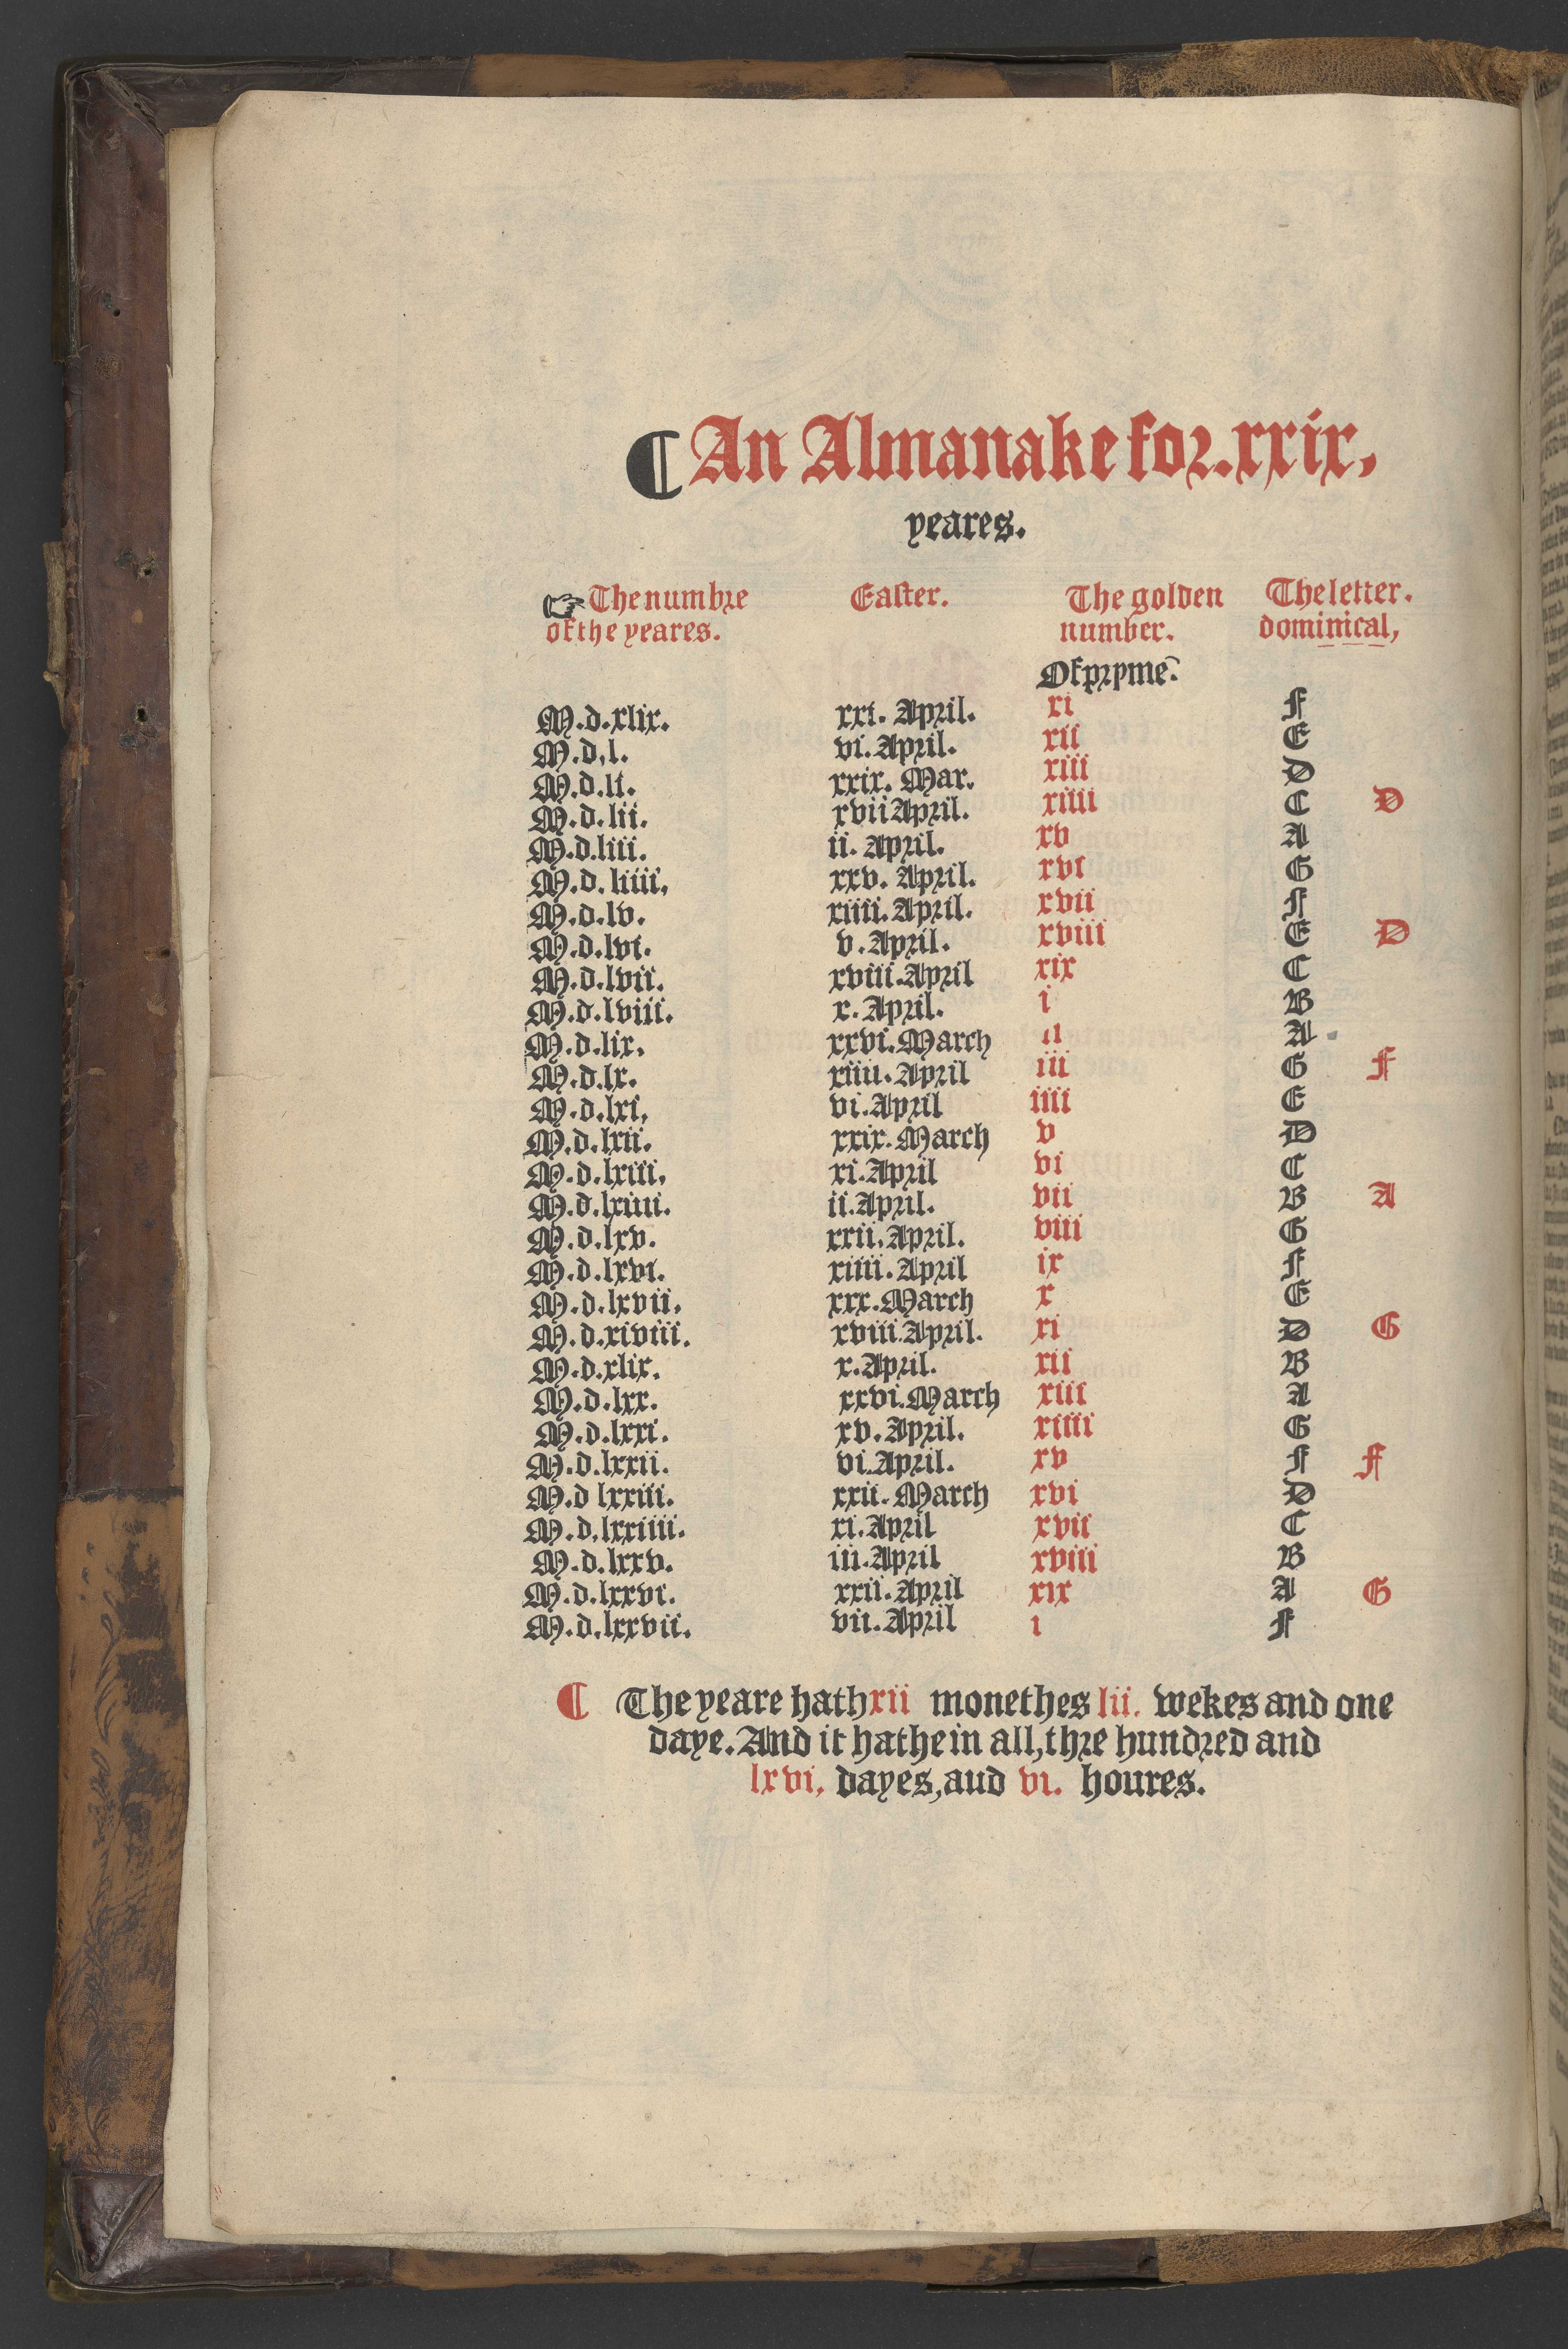 ¶ An Almanake for. xxix,
yeares.
☞ The numbre of the yeares. Easter. The golden number. The letter. dominical,
Of pryme.
M.d.xlix. xxi. April. xi F
M.d,l. vi. April. xii E
M.d.li. xxix. Mar. xiii D
M.d.lii. xvii April. xiiii C D
M.d.liii. ii. April. xv A
M.d.liiii, xxv. April. xvi G
M.d.lv. xiiii. April. xvii F
M.d.lvi. v. April. xviii E D
M.d.lvii. xviii. April xix C
M.d.lviii. x. April. i B
M.d.lix, xxvi. March ii A
M.d.lx. xiiii. April iii G F
M.d.lxi, vi. April iiii E
M.d.lxii. xxix. March v D
M.d.lxiii, xi. April vi C
M.d.lxiiii. ii. April. vii B A
M.d.lxv. xxii. April. viii G
M.d.lxvi. xiiii. April ix F
M.d.lxvii, xxx. March x E
M.d.xlviii. xviii. April. xi D G
M.d.xlix. x. April. xii B
M.d.lxx. xxvi. March xiii A
M.d.lxxi. xv. April. xiiii G
M.d.lxxii. vi. April. xv F F
M.d lxxiii. xxii. March xvi D
M.d,lxxiiii. xi. April xvii C
M.d.lxxv. iii. April xviii B
M.d.lxxvi. xxii. April xix A G
M.d.lxxvii. vii. April i F
¶ The yeare hath xii monethes lii. wekes and one
daye. And it hathe in all, thre hundred and
lxvi, dayes, aud vi. houres.